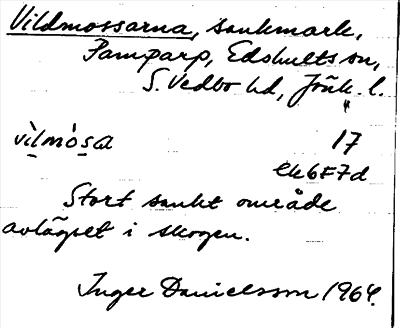 Vildmossarna, sankmark,
Pamparp, Edshults sn,
S. Vedbo hd, Jönk. l.
vìlmósa 17
ek 6F7d
Stort sankt område
avlägset i skogen.
Inger Danielsson 1964.